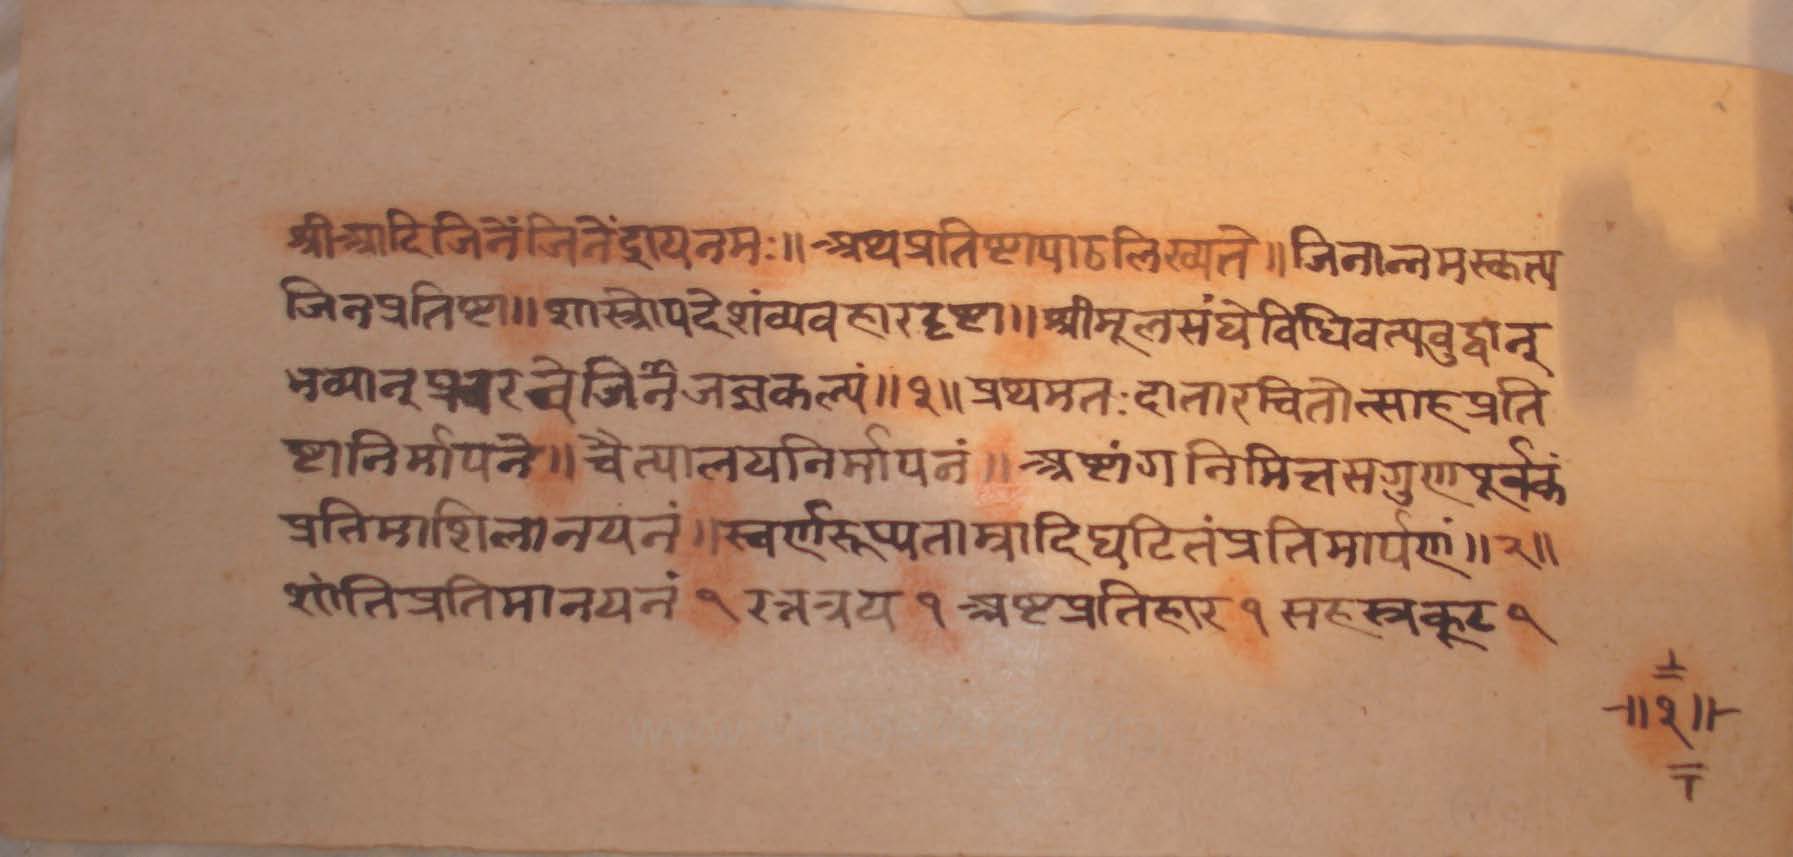 श्रीआदिजिनेंजिनेंद्रायनमः॥ अथप्रतिष्टापाठलिख्यते॥ जिनान्नमस्कत्य
जिनप्रतिष्टा॥ शास्त्रोपदेशंव्यवहारदृष्टा॥ श्रीमूलसंघेविधिवत्प्रवुद्वान्
भव्यान् जिनै कल्पं॥१॥ प्रथमतः दातारचितोत्साहप्रति
ष्टानिर्मापने॥ चैत्यालयनिर्मापनं॥ अष्टांगनिमित्तसगुणपूर्वकं
प्रतिमाशिलानयनं॥ स्वर्णरूप्यताम्रादिघटितंप्रतिमार्पणं॥२॥
शांतिप्रतिमानयनं १ रत्नत्रय १ अष्टप्रतिहार १ सहस्त्रकूट १
॥१॥